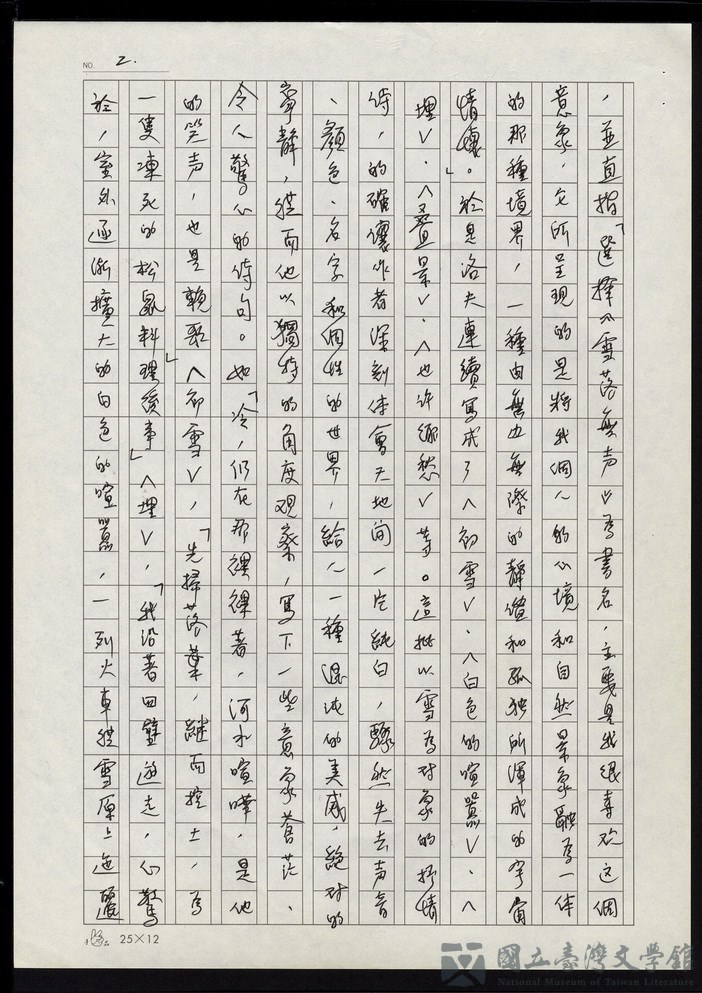 NO. 2.
，並直指「選擇《雪落無声》為書名，主要是我很喜欢这個
意象，它所呈現的是將我個人的心境和自然景象融為一体
的那種境界，一種由無边無際的靜謐和孤独所渾成的宇宙
情懷。」於是洛夫連續寫成了〈初雪〉、〈白色的喧囂〉、〈
埋〉、〈叠景〉、〈也许鄉愁〉等。這批以雪為对象的抒情
诗，的確讓作者深刻体會天地間一片純白，驟然失去声音
、顏色、名字和個性的世界，給人一種混沌的美感，絕对的
寧靜，從而他以獨特的角度观察，寫下一些意象蒼茫、
令人驚心的诗句。如「冷，仍在那裡裸著，河水喧嘩，是他
的笑声，也是輓歌」〈初雪〉，「先掃落葉，繼而挖土，為
一隻凍死的松鼠料理後事」〈埋〉，「我沿著四壁遊走，心驚
於，室外逐漸擴大的白色的喧囂，一列火車從雪原上迤邐
25×12
國立臺灣文學館
National Museum of Taiwan Literature